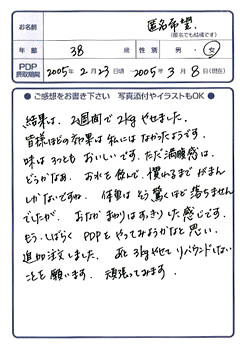 お名前 匿名希望.
(匿名でも結構です)
年齢 38 歳 性別 男・女
PDP摂取期間 2005年2月23日頃 2005年3月8日(現在)
●ご感想をお書き下さい 写真添付やイラストもOK●
結果は、2週間で2kgやせました。
皆様ほどの効果は私にはなかったようです。
味は3つとも おいしいです。ただ満腹感は、
どうかなあ。お水を飲んで 慣れるまでがまん
しかないですね。体重はそう驚くほど落ちません
でしたが、おなかまわりはすっきりした感じです。
もうしばらく PDPをやってみようかなと思い、
追加注文しました。あと3kgやせて リバウンドしない
ことを願います。頑張ってみます。